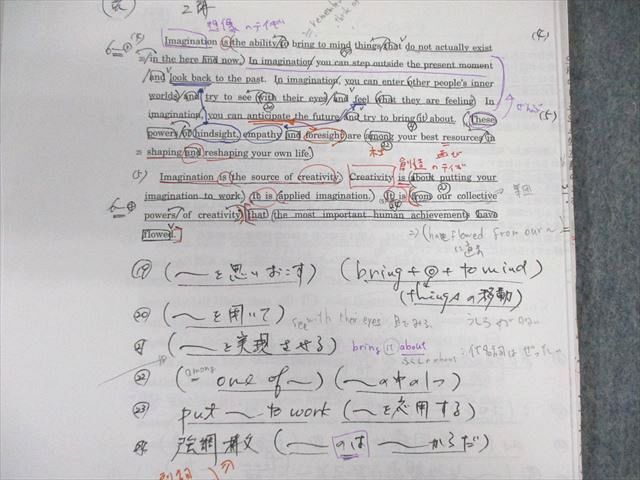 2講
想像
Imagination is the ability to bring to mind things that do not actually exist
in the here and now. In imagination you can step outside the present moment
and look back to the past. In imagination, you can enter other people's inner
worlds and try to see with their eyes and feel what they are feeling. In
imagination, you can anticipate the future and try to bring it about. These
powers of hindsight, empathy and foresight are among your best resources in
shaping and reshaping your own life.
創造
(5) Imagination is the source of creativity. Creativity is about putting your
imagination to work. It is applied imagination. It is from our collective
powers of creativity that the most important human achievements have
flowed.
(have flowed from our ~)
⑲ (~を思いおこす) (bring + ◎ + to mind)
(things の移動)
⑳ (~を用いて) see with their eyes
㉑ (~を実現させる) bring it about
among
㉒ (= one of ~) (~の中の1つ)
㉓ put ~ to work (~を応用する)
㉔ 強調構文 (~のは ~からだ)